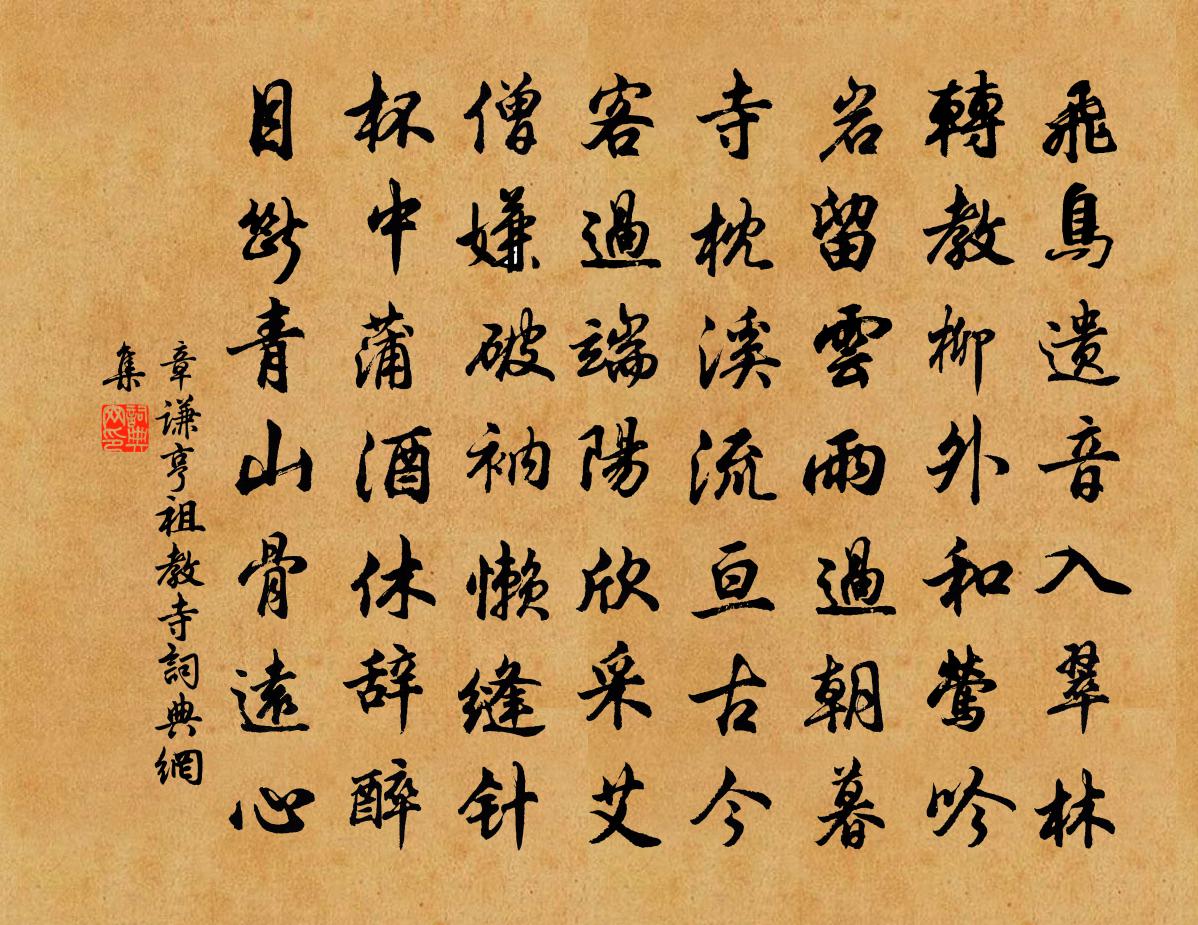 飛鳥遗音入翠林
轉教柳外和鶯吟
岩留雲雨過朝暮
寺枕溪流亘古今
客過端陽欣采艾
僧嫌破衲懒縫针
杯中蒲酒休辞醉
目断青山骨遠心
章谦亨祖教寺詞典網
集
詞典網印